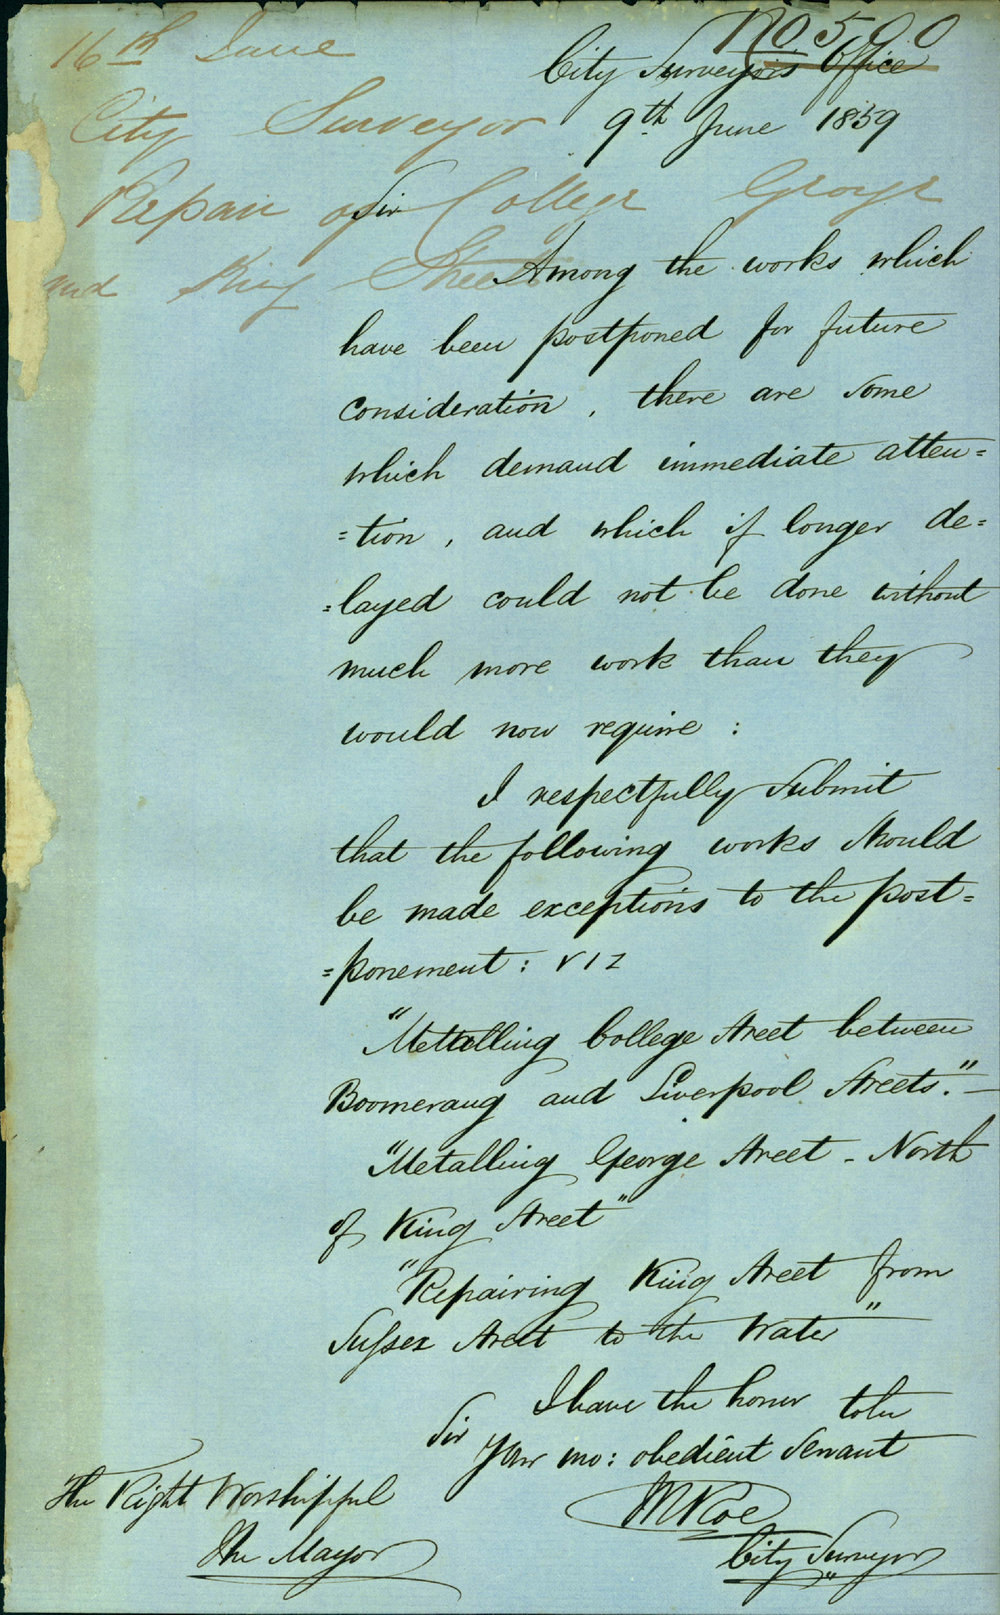 No 500
16th June
City Surveyor
Repair of College George
and King Streets
City Surveyors Office
9th June 1859
Sir
Among the works which
have been postponed for future
consideration, there are some
which demand immediate atten=
=tion, and which if longer de=
=layed could not be done without
much more work than they
would now require :
I respectfully submit
that the following works should
be made exceptions to the post=
=ponement : VIZ
"Mettalling College Street between
Boomerang and Liverpool Streets." —
"Metalling George Street - North
of King Street"
"Repairing King Street from
Sussex Street to the Water"
I have the honor to be
Sir
Your mo: obedient Servant
City Surveyor
The Right Worshipful
The Mayor